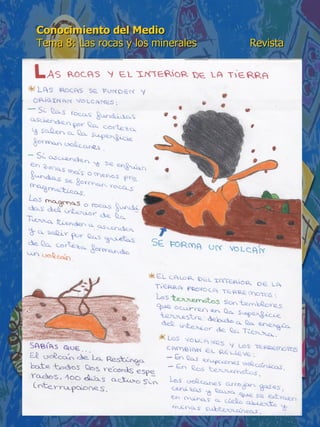 Conocimiento del Medio
Tema 8: Las rocas y los minerales Revista
LAS ROCAS Y EL INTERIOR DE LA TIERRA
* LAS ROCAS SE FUNDEN Y
ORIGINAN VOLCANES:
- Si las rocas fundidas
ascienden por la corteza
y salen a la superficie
forman volcanes.
- Si ascienden y se enfrían
en zonas más o menos pro
fundas se forman rocas
magmáticas.
Los magmas o rocas fundi
das del interior de la
Tierra tienden a ascender
y a salir por las grietas
de la corteza formando
un volcán.
SE FORMA UN VOLCAN
* EL CALOR DEL INTERIOR DE LA
TIERRA PROVOCA TERREMOTOS:
Los terremotos son temblores
que ocurren en la superficie
terrestre debado a la energía
del interior de la Tierra.
* LOS VOLCANES Y LOS TERREMOTOS
CAMBIAN EL RELIEVE:
- En las erupciones volcánicas.
- En los terremotos.
Los volcanes arrojan gases,
cenizas y lava que se extraen
en minas a cielo abierto y
minas subterráneas.
SABÍAS QUE...
El volcán de La Restinga
bate todos los records espe
rados. 100 días activo sin
interrupciones.